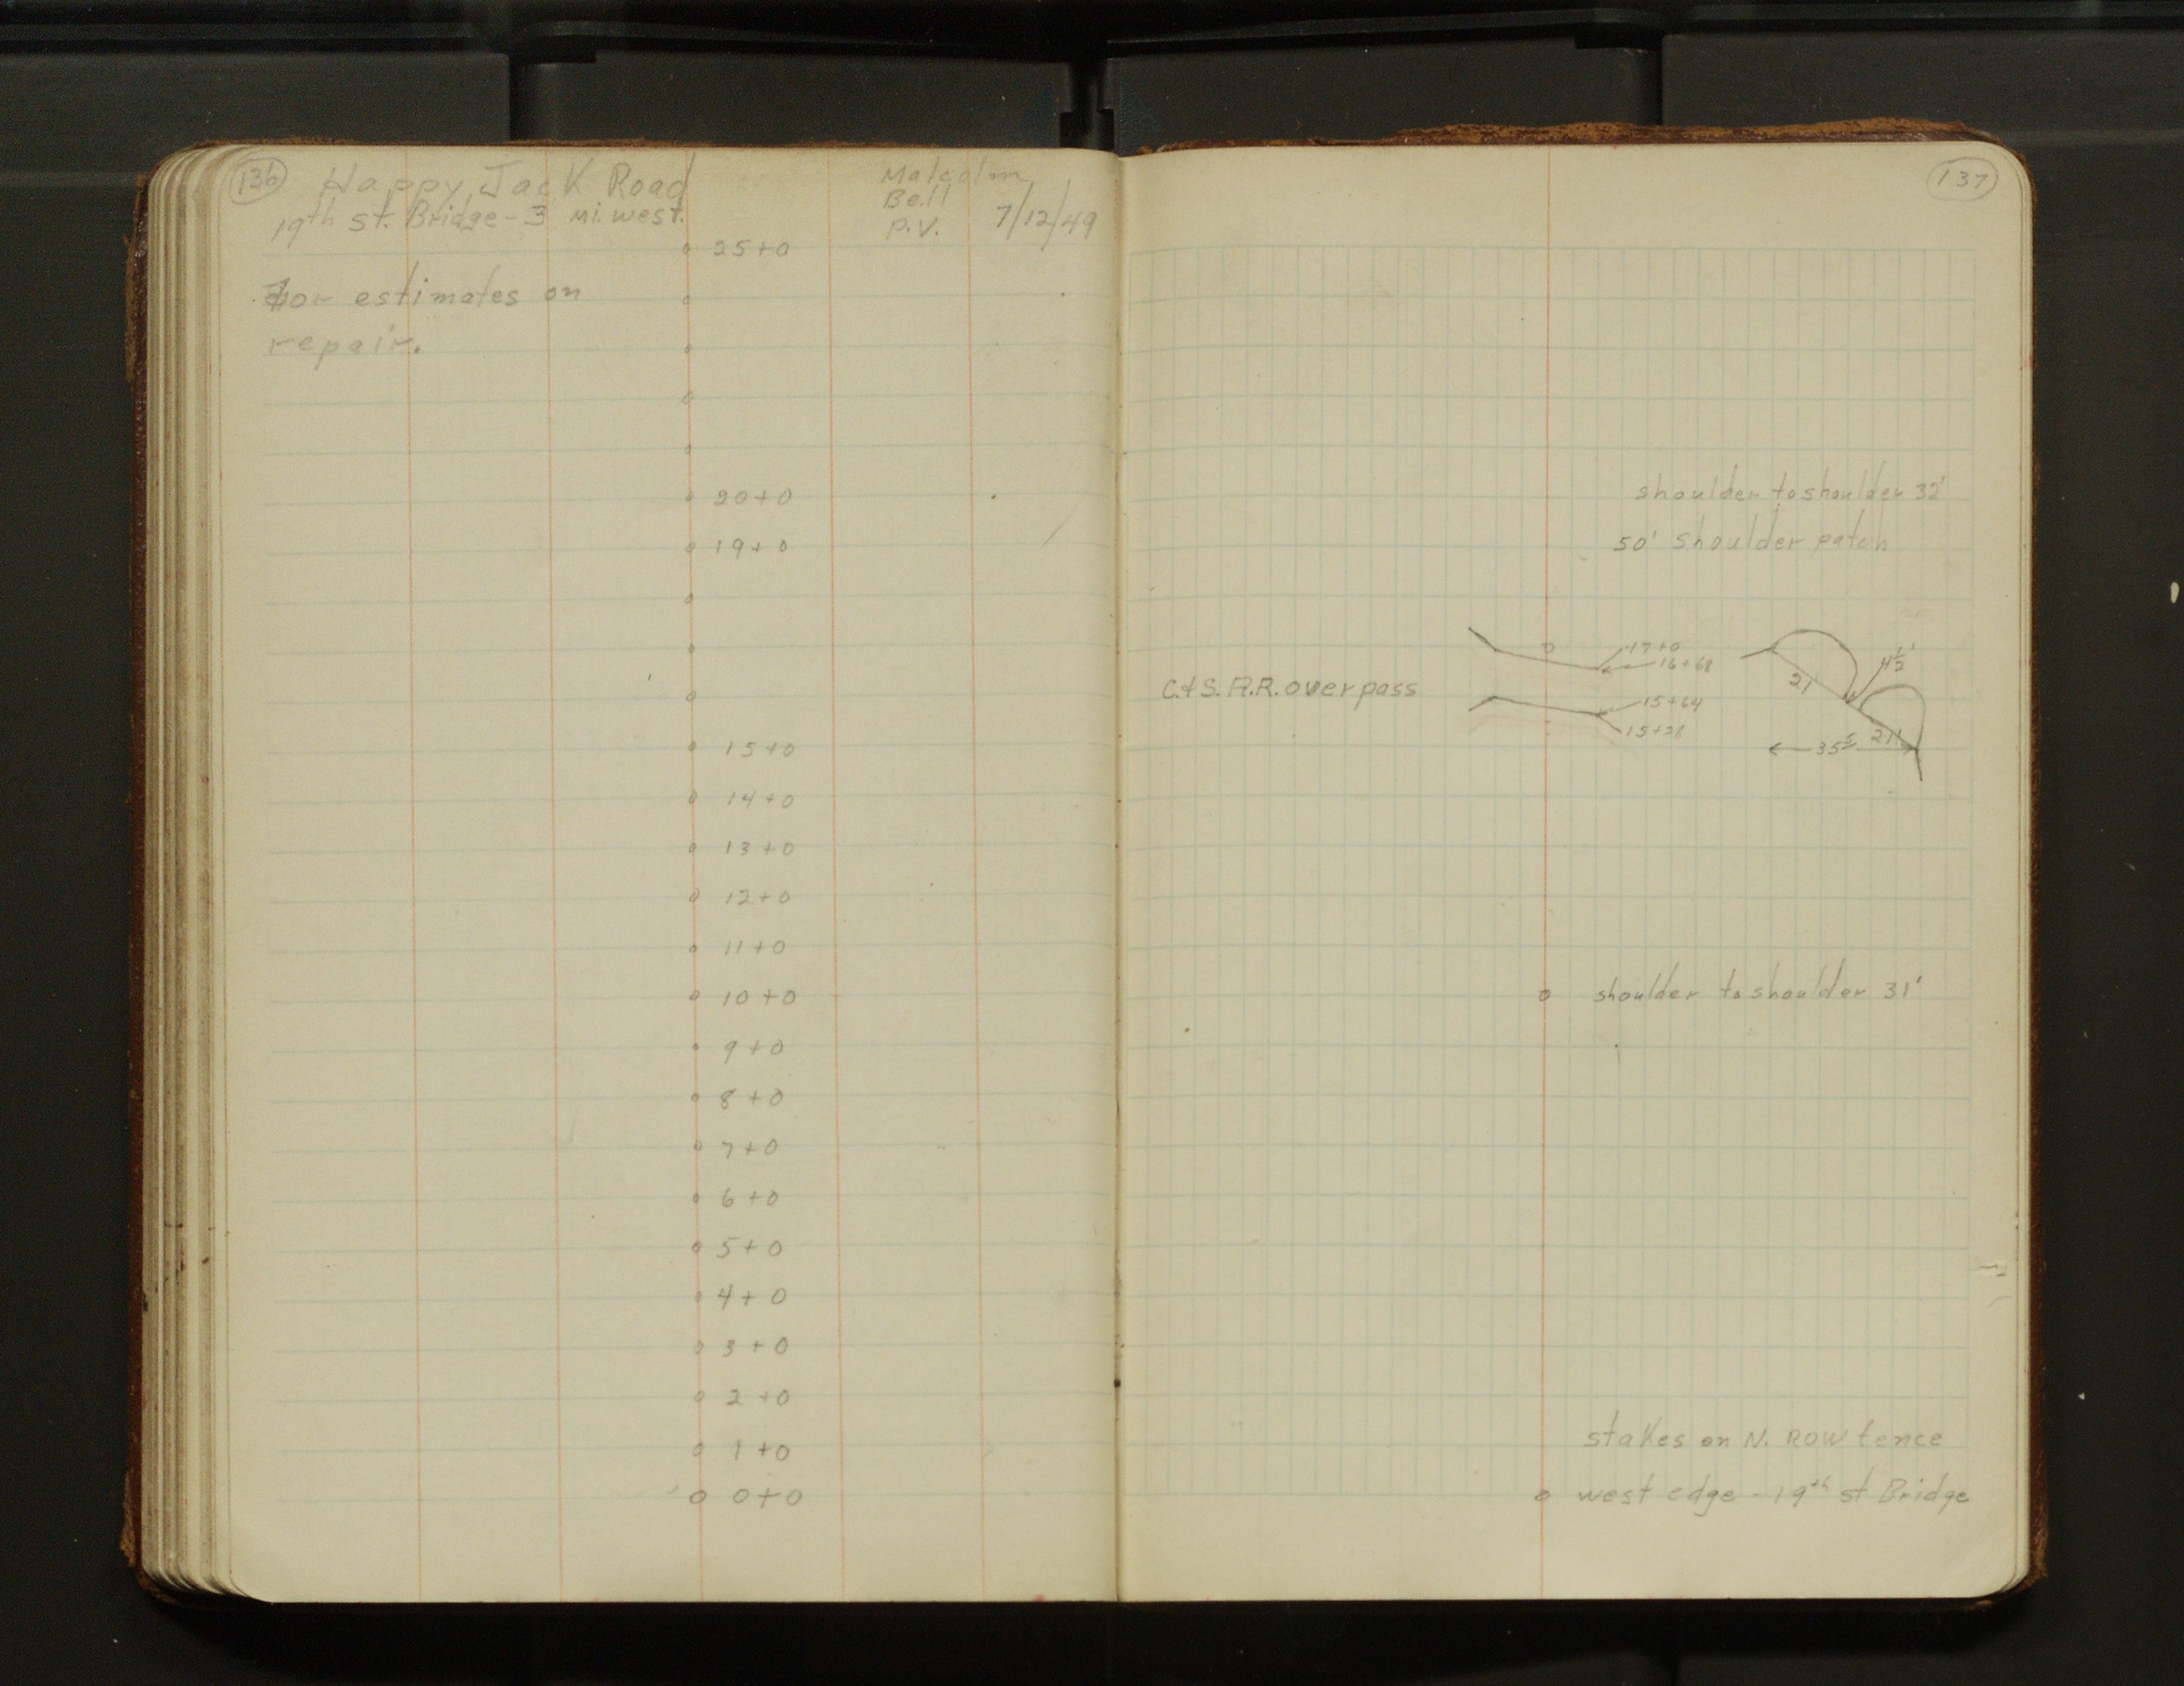 136
Happy Jack Road
19th st. Bridge - 3 mi. west.
Malcolm
Bell
P.V. 7/12/49
25+0
for estimates on
repair.
20+0
19+0
15+0
14+0
13+0
12+0
11+0
10+0
9+0
8+0
7+0
6+0
5+0
4+0
3+0
2+0
1+0
0+0
137
shoulder to shoulder 32'
50' shoulder patch
17+0
16+68
C.&S. R.R. overpass
15+64
15+28
4½'
21
21'
35⁵
shoulder to shoulder 31'
stakes on N. ROW fence
west edge - 19th st Bridge